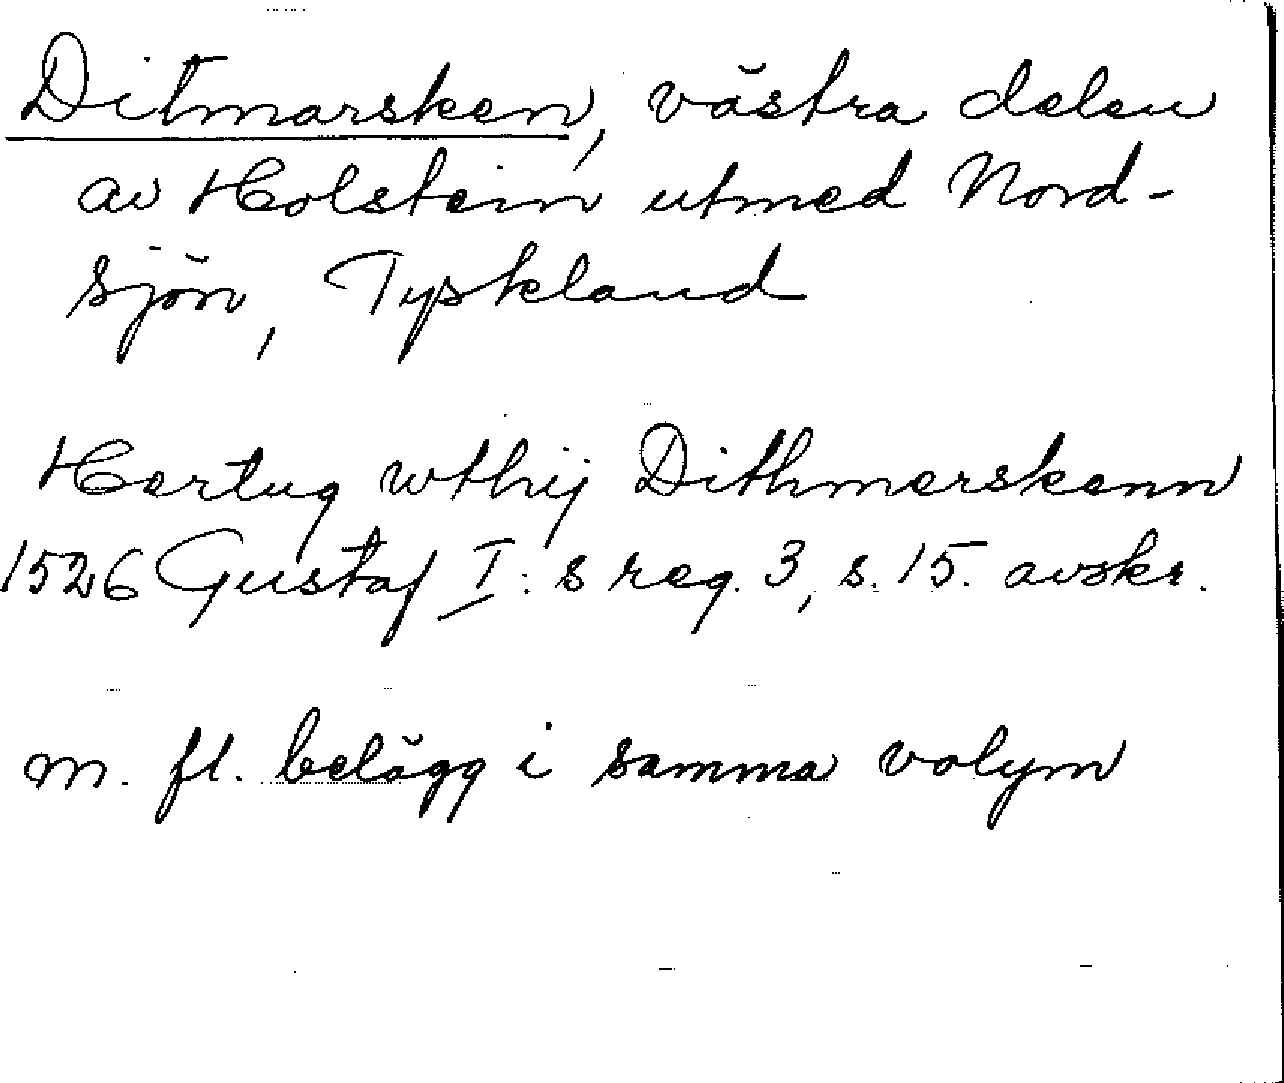 Ditmarsken, västra delen
av Holstein utmed Nord-
sjön, Tyskland
Hertug wthij Dithmerskenn
1526 Gustaf I:s reg. 3, s. 15. avskr.
m. fl. belägg i samma volym